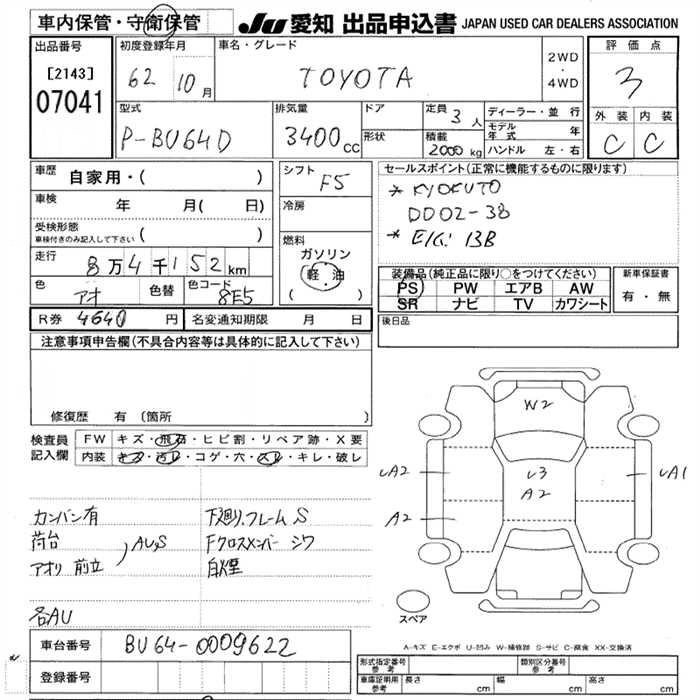 車内保管・守衛保管
JU 愛知 出品申込書 JAPAN USED CAR DEALERS ASSOCIATION
出品番号
[2143]
07041
初度登録年月
62 10月
車名・グレード
TOYOTA
2WD
・
4WD
評価点
3
外装 内装
C C
型式
P-BU64D
排気量
3400cc
ドア
形状
定員 3人
積載 2000kg
ディーラー・並行
モデル年式 年
ハンドル 左・右
車歴 自家用・( )
車検 年 月( 日)
受検形態
車検付きのみ記入して下さい ( )
走行 8万4千152km
色 アオ
色替
色コード 8E5
シフト F5
冷房
燃料
ガソリン
軽油
( )
セールスポイント(正常に機能するものに限ります)
* KYOKUTO
DD02-38
* E/G: 13B
装備品(純正品に限り○をつけてください)
PS PW エアB AW
SR ナビ TV カワシート
新車保証書
有・無
R券 4640円
名変通知期限 月 日
後日品
注意事項申告欄(不具合内容等は具体的に記入して下さい)
修復歴 有 (箇所
検査員
記入欄
FW キズ・飛石・ヒビ割・リペア跡・X要
内装 キズ・汚レ・コゲ・穴・スレ・キレ・破レ
カンバン有
荷台
アオリ 前立
AUS
各AU
下廻リ.フレームS
Fクロスメンバー シワ
白煙
W2
U3
A2
UA2
A2
UA1
スペア
A-キズ E-エクボ U-凹み W-補修跡 S-サビ C-腐食 XX-交換済
車台番号 BU64-0009622
登録番号
形式指定番号
参考
類別区分番号
参考
車庫証明用
参考
長さ cm 幅 cm 高さ cm